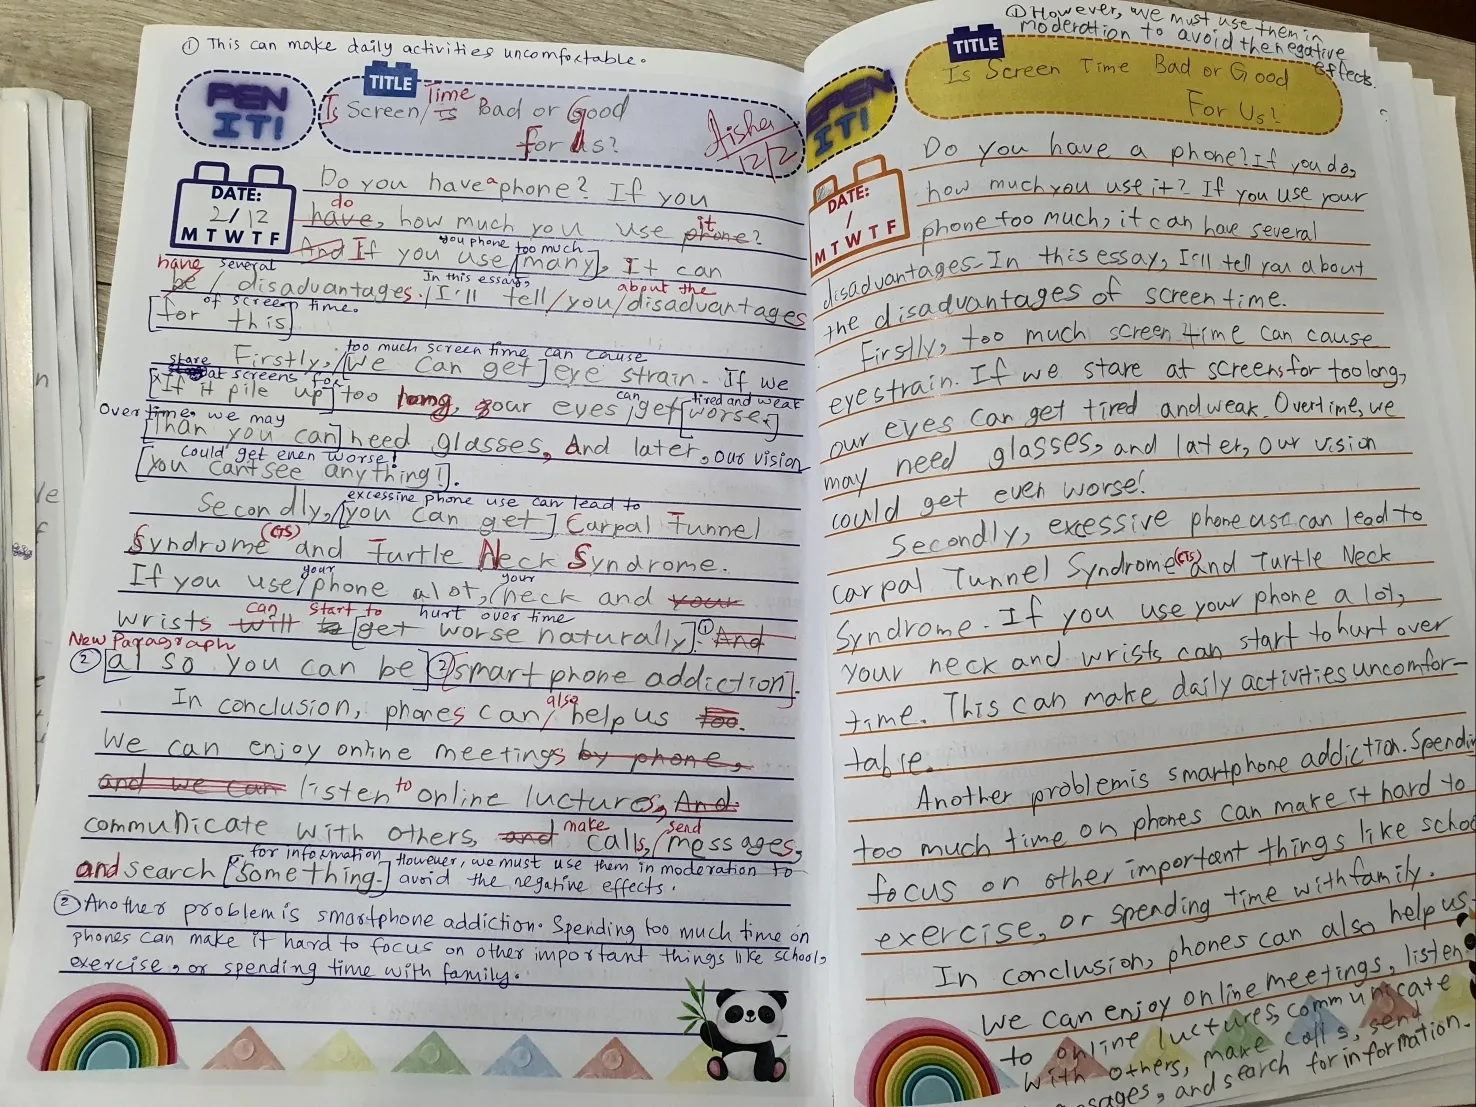 ① This can make daily activities uncomfortable.
PEN IT!
TITLE
Is Screen/Time Is Bad or Good
For Us?
Aisha
12/2
DATE:
2/12
M T W T F
Do you have a phone? If you
do
have, how much you use phone? it
And If you use [many], It can
you phone too much
have several
be / disadvantages. I'll tell/you/disadvantages
In this essay, about the
of screen time.
[for this]
too much screen time can cause
Firstly, /[we can get] eye strain. If we
stare at screens for
[If it pile up] too long, our eyes get [worse.]
can tired and weak
Over time, we may
[Than you can] need glasses, And later, our vision
could get even worse!
[you can't see anything!].
excessine phone use can lead to
Secondly, [you can get] Carpal Tunnel
Syndrome (CTS) and Turtle Neck Syndrome.
If you use/your phone a lot,/your neck and your
can start to hurt over time
wrists will to [get worse naturally]. ① And
New Paragraph
② [also you can be] ② [smartphone addiction].
In conclusion, phones can/also help us too.
We can enjoy online meetings by phone,
and we can listen to online luctures, And
communicate with others, and make calls,/send messages,
for information
and search [something.]
However, we must use them in moderation to
avoid the negative effects.
② Another problem is smartphone addiction. Spending too much time on
phones can make it hard to focus on other important things like school,
exercise, or spending time with family.
① However, we must use them in
moderation to avoid the negative
effects.
OPEN IT!
TITLE
Is Screen Time Bad or Good
For Us?
DATE:
/
M T W T F
Do you have a phone? If you do,
how much you use it? If you use your
phone too much, it can have several
disadvantages. In this essay, I'll tell you about
the disadvantages of screen time.
Firstly, too much screen time can cause
eye strain. If we stare at screens for too long,
our eyes can get tired and weak. Overtime, we
may need glasses, and later, our vision
could get even worse!
Secondly, excessive phone use can lead to
Carpal Tunnel Syndrome (CTS) and Turtle Neck
Syndrome. If you use your phone a lot,
your neck and wrists can start to hurt over
time. This can make daily activities uncomfor-
table.
Another problem is smartphone addiction. Spendin
too much time on phones can make it hard to
focus on other important things like schoo
exercise, or spending time with family.
In conclusion, phones can also help us.
We can enjoy online meetings, listen
to online luctures, communicate
with others, make calls, send
ssages, and search for information.